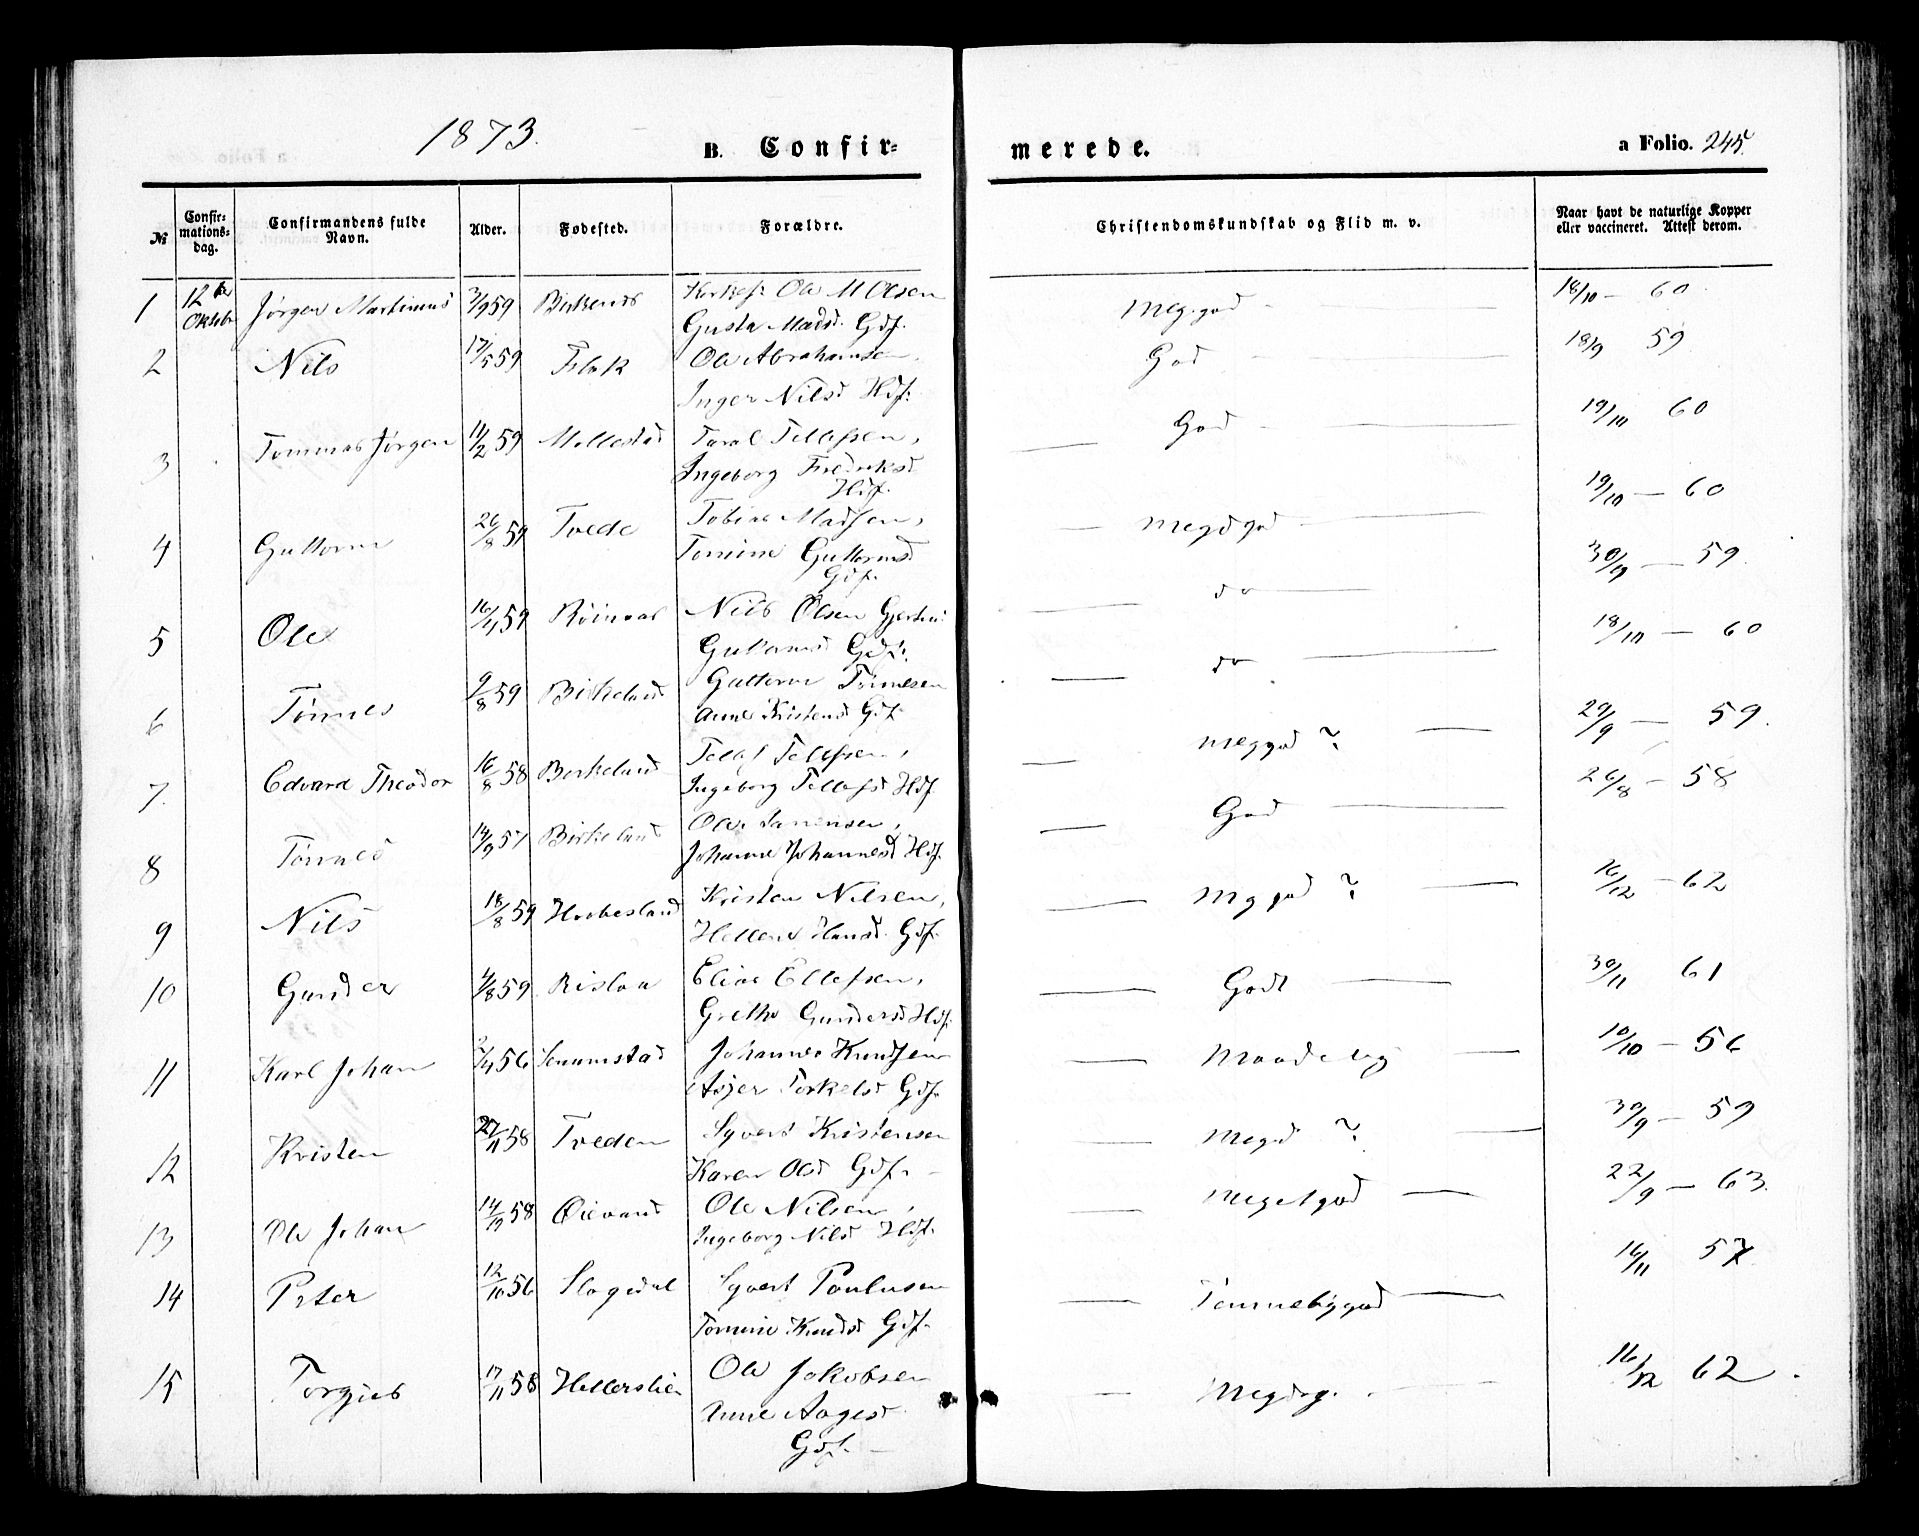 1873.
B. Confir-
merede.
a Folio. 245.
№
Confir-
mations-
dag.
Confirmandens fulde
Navn.
Alder.
Fødested.
Forældre.
Christendomskundskab og Flid m. v.
Naar havt de naturlige Kopper
eller vaccineret. Attest derom.
1 12te Oktbr Jørgen Martinus 3/9 59 Ole M Olsen
Gusta Madsd. Gdf.
Meg. god 18/10 — 60
2 Nils 17/5 59 Flak Ole Abrahamsen,
Inger Nilsd Hdf.
God 18/9 59
3 Tommas Jørgen 11/2 59 Mollestad Tarol Tellefsen,
Ingeborg Fredriksd
Hdf.
God 19/10 60
4 Guttorm 26/8 59 Tvede Tobias Madsen,
Tomine Guttormsd
Gdf.
Megd god 19/10 — 60
5 Ole 59 Nils Olsen
Guttormsd Gdf.
do 30/9 — 59
6 Tønnes 9/8 59 Birkeland Guttorm Tønnesen
Anne Kristensd Gdf.
do 18/10 — 60
7. Edvard Theodor 16/8 58 Berkeland Tellef Tellefsen,
Ingeborg Tellefsd Hdf
meg god ? 29/9 — 59.
8 Tønnes 14/9 57 Birkeland Ole
Johanne Johannesd Hdf.
God 26/8 — 58
9 Nils 18/8 59 Hoobesland Kristen Nilsen,
Hellene Hansd. Gdf.
Mg god ? 16/12 — 62
10 Gunder 4/8 59 Rislaa Elias Ellefsen,
Grethe Gundersd Hdf.
Godt 30/11 61
11 Karl Johan 56 Johannes Knudsen
Asjer Torkelsd Gdf.
Maadelig 10/10 — 56
12 Kristen 27/11 58 Tveden Syvert Kristensen
Karen Olsd Gdf.
Megd ? 30/9 — 59
13 Ole Johan 58 Øievand Ole Nilsen,
Ingeborg Nilsd Hdf.
Meget god 22/9 — 63.
14 Peter 12/10 56 Slogedal Syvert Paulusen
Tomine Knudsd Gdf.
Temmelig god 16/11 57
15 Torgjus 17/11 58 Hellerslien Ole Jokobsen
Anne Aagesd
Gdf.
16/12 62.